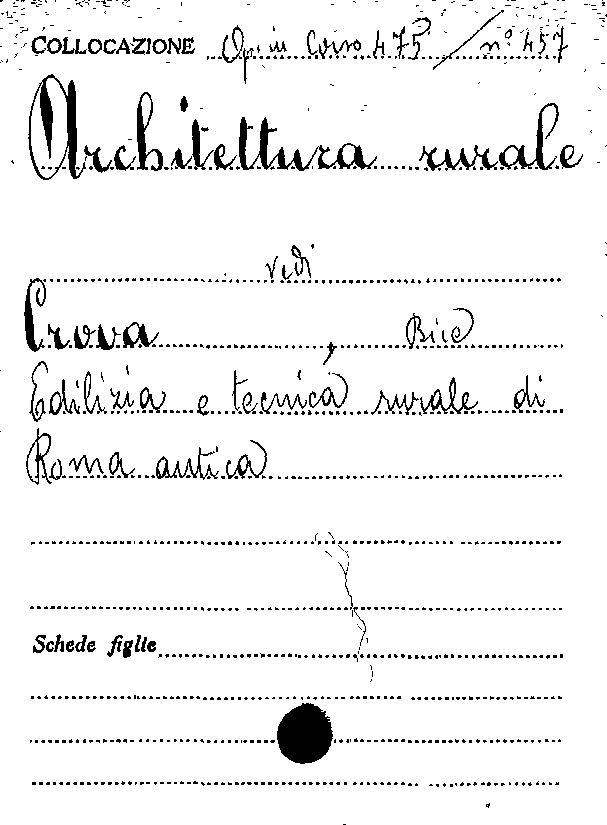 COLLOCAZIONE Op. in Corso 475 / n° 457
Architettura rurale
vedi
Crova, Bice
Edilizia e tecnica rurale di
Roma antica
Schede figlie